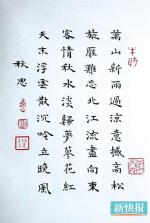 萬山新雨過涼意撼高松
旅雁難忘北江流盡向東
客情秋水淡歸夢蓼花紅
天末浮雲散沉吟立晚風
秋思
新快报